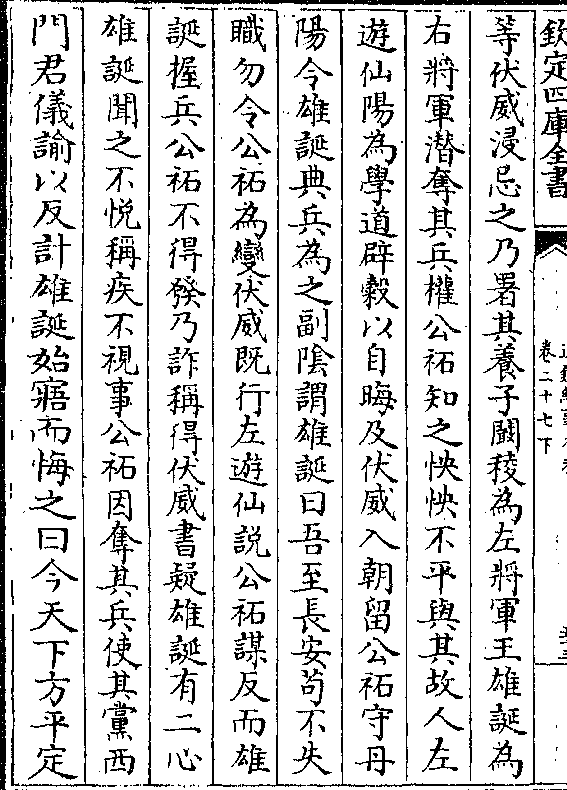 欽定四庫全書
卷二十七下
等伏威浸忌之乃署其養子闞稜為左將軍王雄誕為
右將軍潛奪其兵權公祏知之怏怏不平與其故人左
遊仙陽為學道辟穀以自晦及伏威入朝留公祏守丹
陽令雄誕典兵為之副陰謂雄誕曰吾至長安苟不失
職勿令公祏為變伏威既行左遊仙説公祏謀反而雄
誕握兵公祏不得發乃詐稱得伏威書疑雄誕有二心
雄誕聞之不悦稱疾不視事公祏因奪其兵使其黨西
門君儀諭以反計雄誕始寤而悔之曰今天下方平定